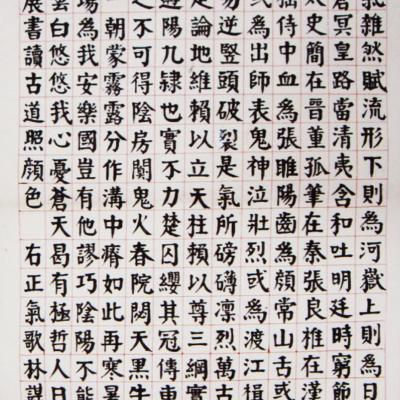 氣雜然賦流形下則為河嶽上則為日
蒼冥皇路當清夷含和吐明廷時窮節
太史簡在晉董狐筆在秦張良椎在漢
嵇侍中血為張睢陽齒為顏常山舌或
為出師表鬼神泣壯烈或為渡江楫
笏逆豎頭破裂是氣所磅礴凜烈萬古
是論地維賴以立天柱賴以尊三綱實
遘陽九隸也實不力楚囚纓其冠傳車
之不可得陰房闃鬼火春院閟天黑牛
一朝蒙霧露分作溝中瘠如此再寒暑
場為我安樂國豈有他謬巧陰陽不能
雲白悠悠我心憂蒼天曷有極哲人日
展書讀古道照顏色 右正氣歌林謀